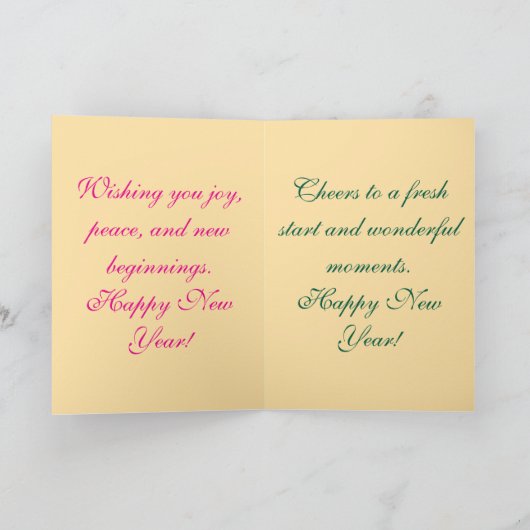 Wishing you joy,
peace, and new
beginnings.
Happy New
Year!
Cheers to a fresh
start and wonderful
moments.
Happy New
Year!